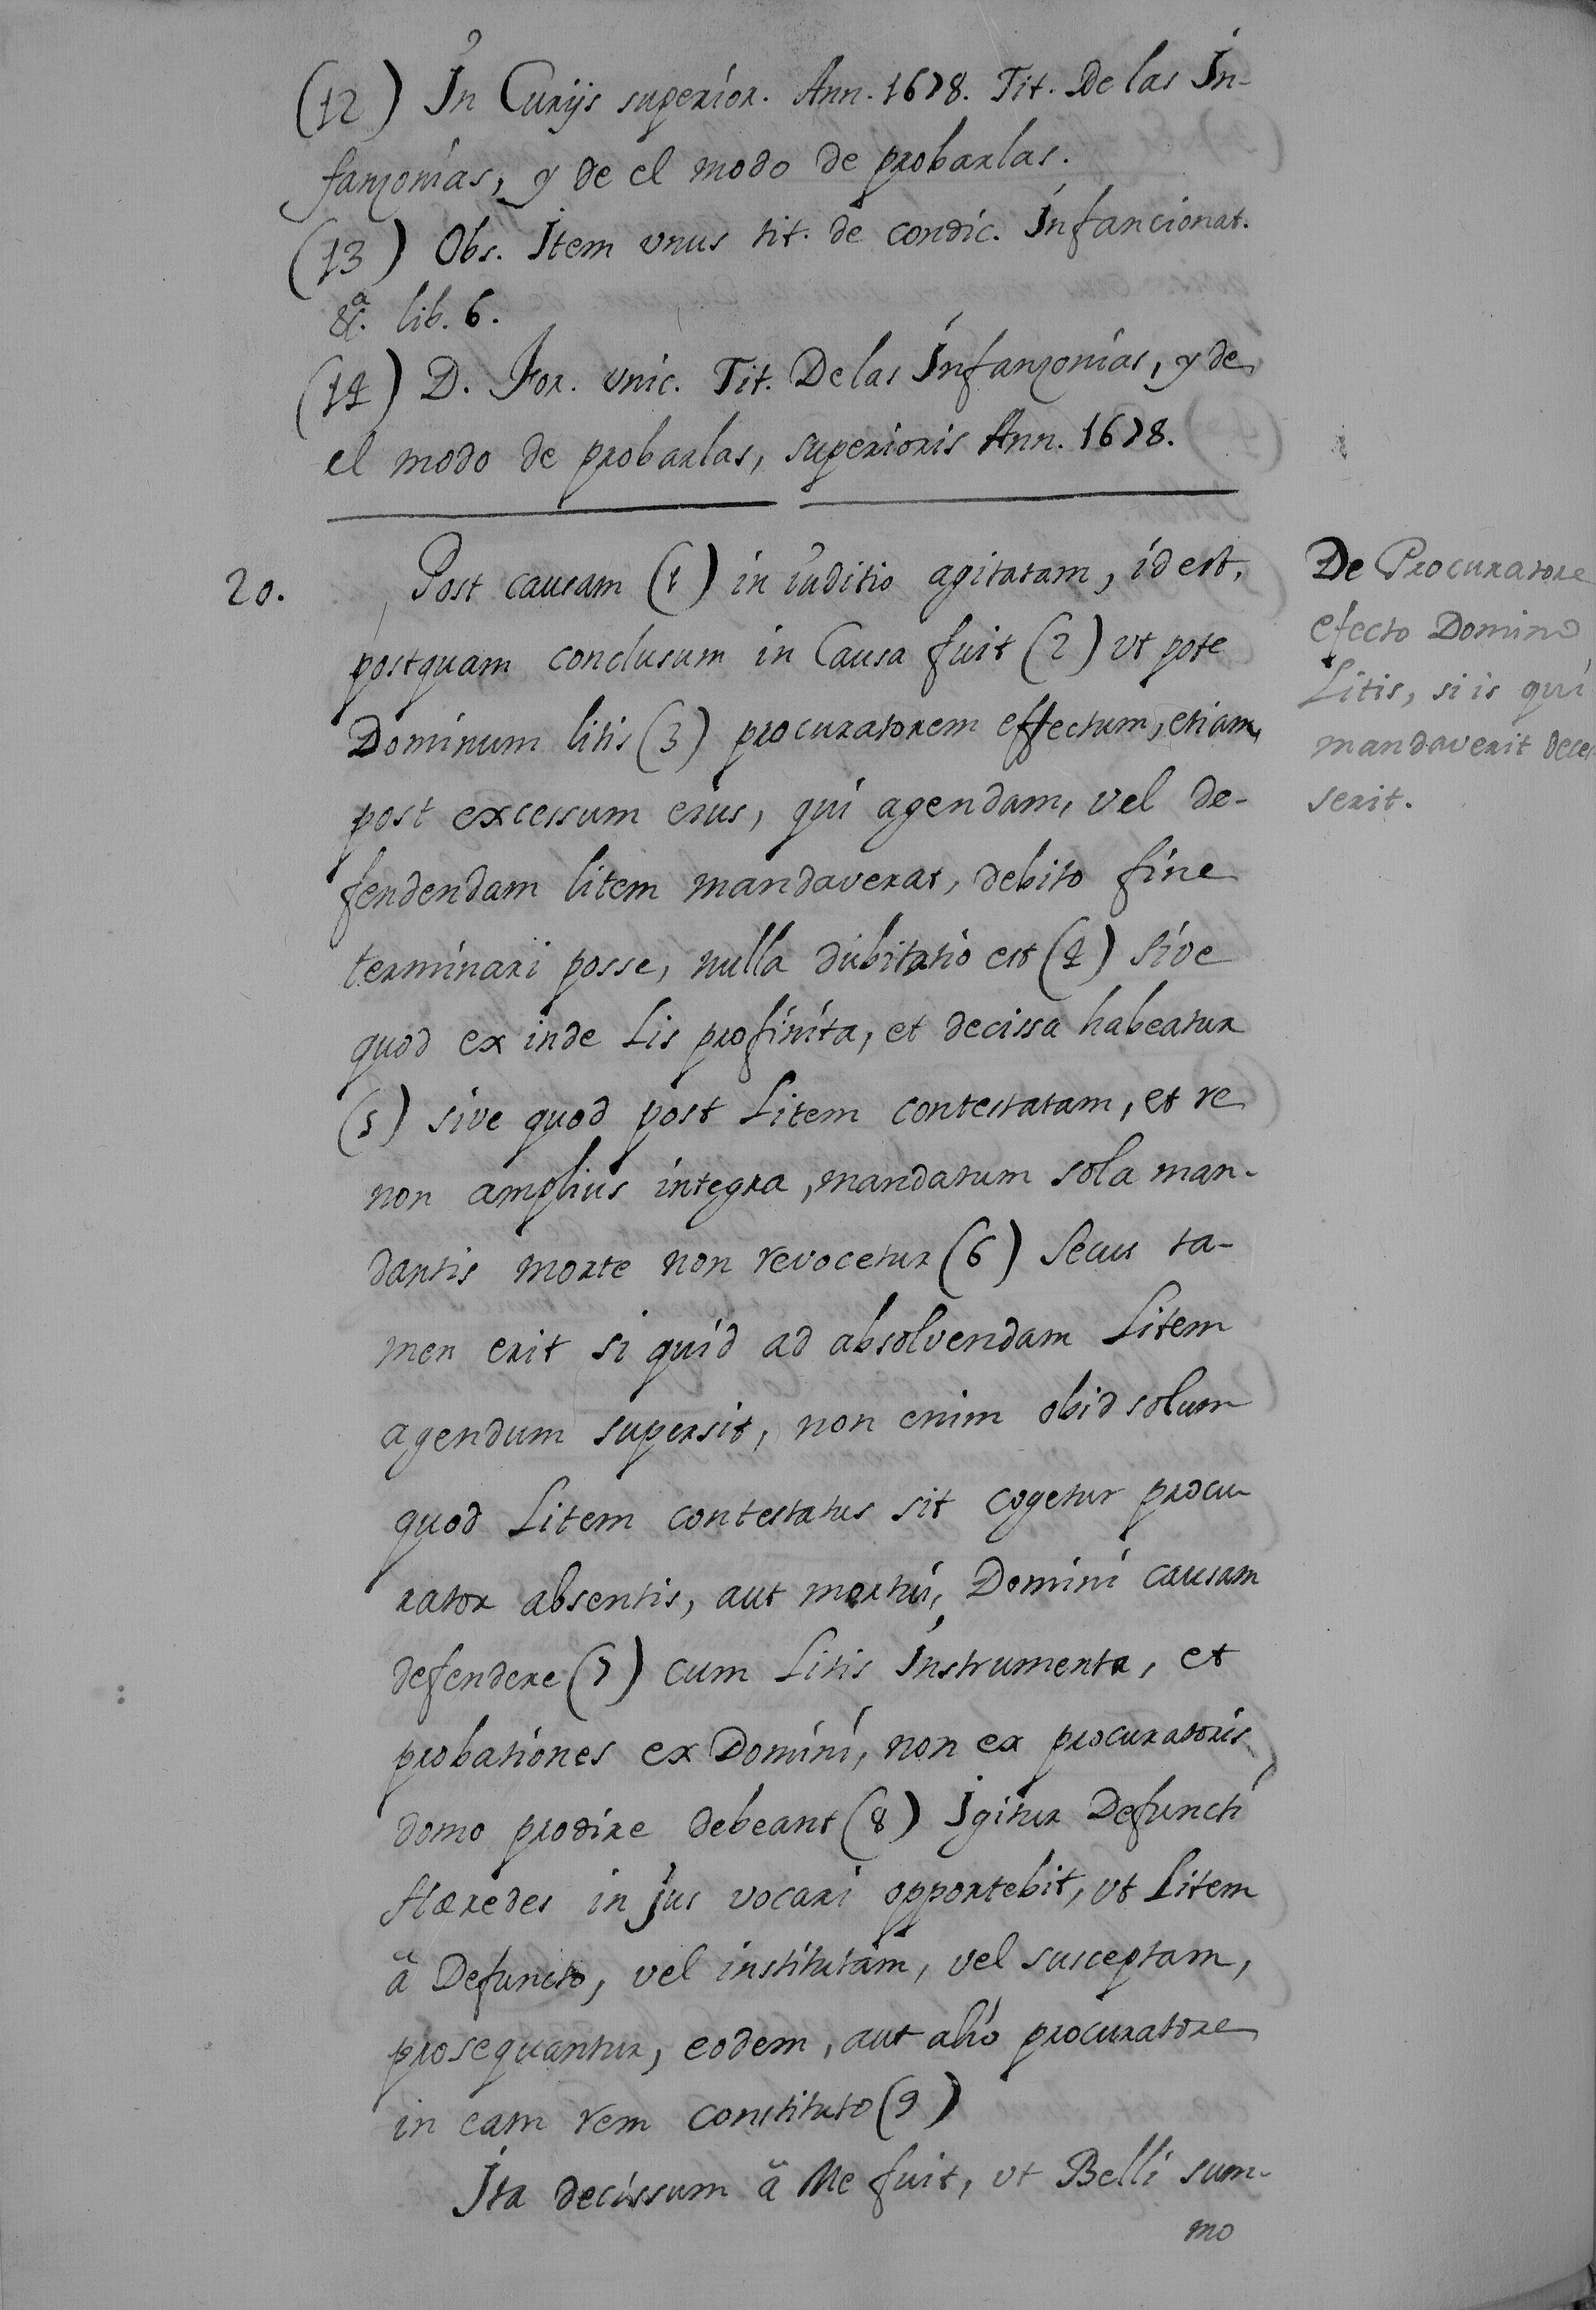 (12) In Curijs superior. Ann. 1678. Tit. De las In-
fanzonias, y de el modo de probarlas.
(13) Obs. Item vnus tit. de condic. Infancionat.
&ª. lib. 6.
(14) D. For. vnic. Tit. De las Infanzonias, y de
el modo de probarlas, superioris Ann. 1678.
20. Post causam (1) in iuditio agitatam, id est,
postquam conclusum in Causa fuit (2) vt pote
Dominum litis (3) procuratorem effectum, etiam
post excessum eius, qui agendam, vel de-
fendendam litem mandaverat, debito fine
terminari posse, nulla dubitatio est (4) sive
quod ex inde Lis profinita, et decissa habeatur
(5) sive quod post Litem contestatam, et re
non amplius integra, mandatum sola man-
dantis morte non revocetur (6) Secus ta-
men erit si quid ad absolvendam Litem
agendum supersit, non enim obid solum
quod Litem contestatus sit cogetur procu-
rator absentis, aut mortui, Domini causam
defendere (7) cum Litis Instrumenta, et
probationes ex Domini, non ex procuratoris
domo prodire debeant (8) Igitur Defuncti
Hæredes in jus vocari opportebit, vt Litem
â Defuncto, vel institutam, vel susceptam,
prosequantur, eodem, aut alio procuratore
in eam rem constituto (9)
Ita decissum â Me fuit, vt Belli sum-
mo
De Procuratore
efecto Domino
Litis, si is qui
mandaverit deces
serit.